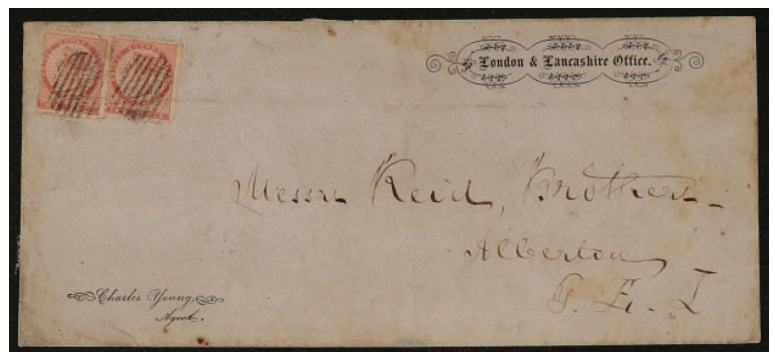 London & Lancashire Office.
Messrs Reid, Brothers
Alberton
P. E. I
Charles Young,
Agent.